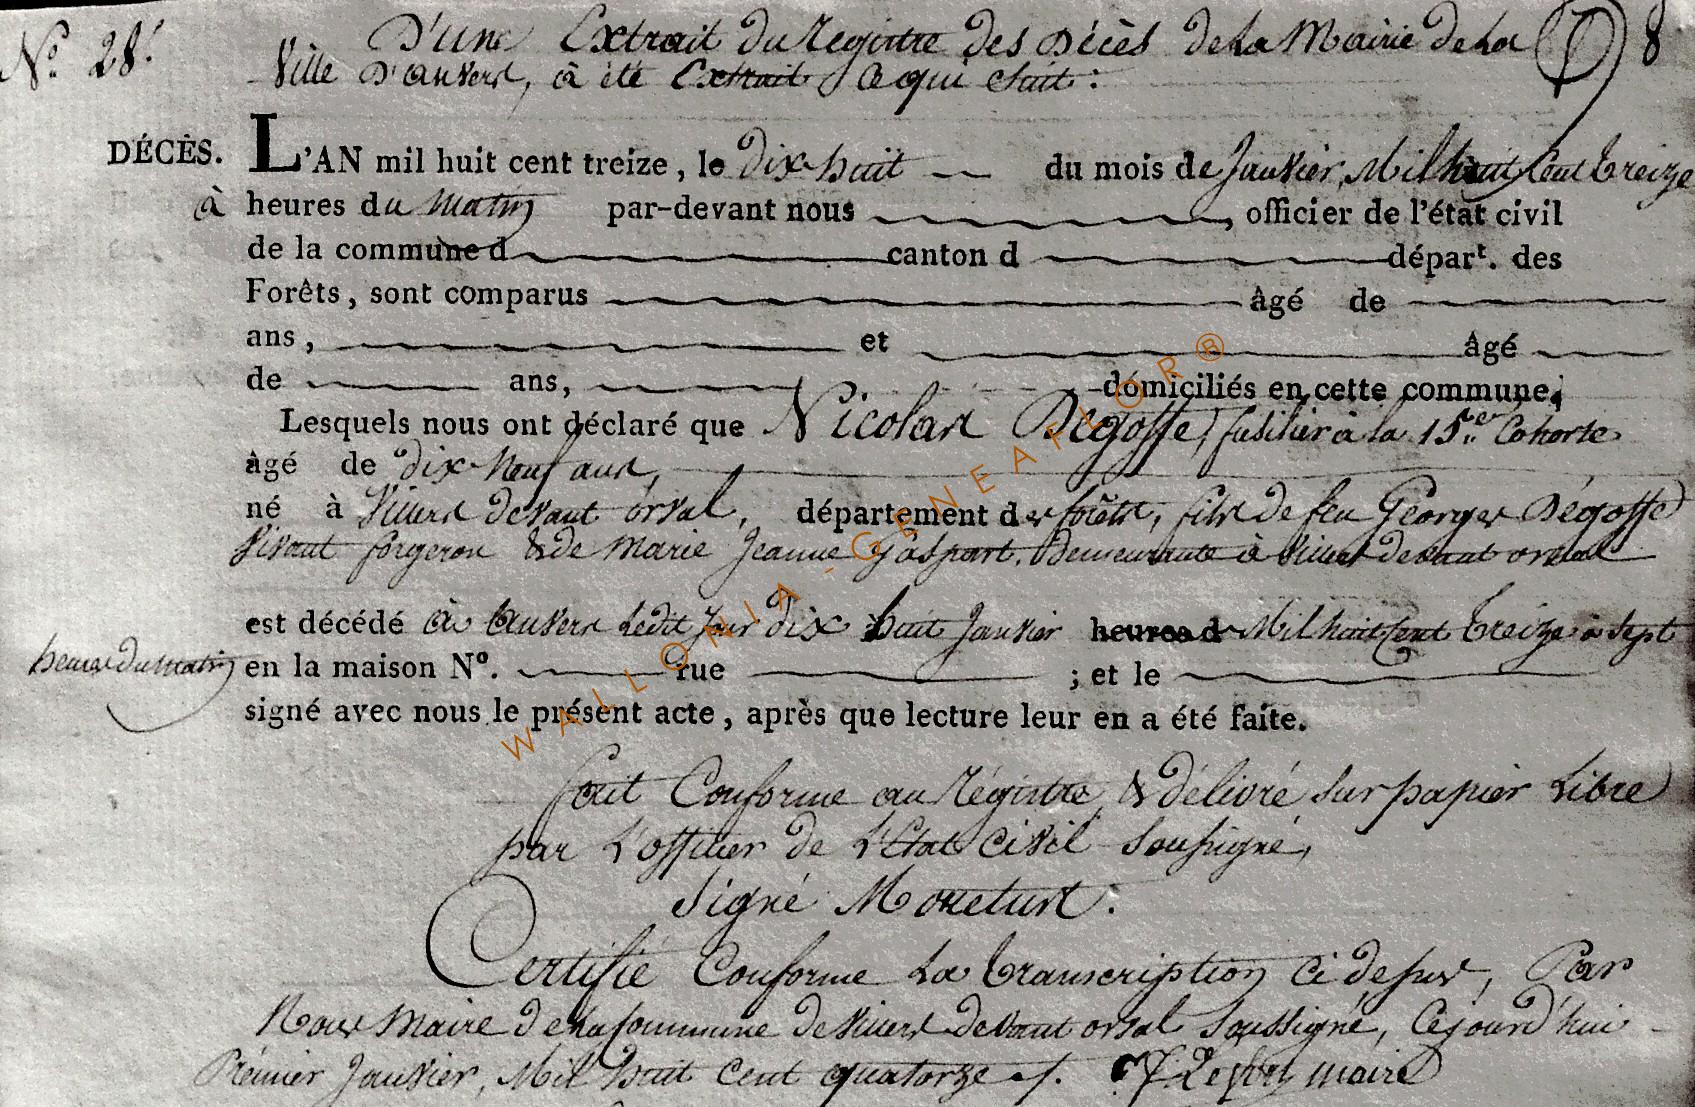 N.º 28. D'un Extrait du Registre des Décès de La Mairie de La 8
Ville D'anvers, à été Extrait Ce qui Suit :
DÉCÈS. L'AN mil huit cent treize, le dix huit du mois de Janvier, Mil huit Cent treize
à heures du Matin par-devant nous , officier de l'état civil
de la commune d canton d départ. des
Forêts, sont comparus âgé de
ans, et âgé
de ans, domiciliés en cette commune,
Lesquels nous ont déclaré que Nicolas Degoffe, fusilier à la 15.e Cohorte
âgé de dix Neuf ans,
né à Villers devant orval, département des forêts, fils de feu Georges Dégoffe
Vivant forgeron & de Marie Jeanne gaspart, Demeurante à Villers devant orval
est décédé à Anvers Ledit Jour dix huit Janvier heures d Mil huit Cent treize à Sept
heures du Matin en la maison Nº. rue ; et le
signé avec nous le présent acte, après que lecture leur en a été faite.
pour Conforme au Régistre & délivré Sur papier Libre
par L'officier de L'Etat Civil Soussigné,
Signé
Certifié Conforme La transcription Ci dessus, Par
Nous Maire de La Commune de Villers devant orval Soussigné, Cejourd'hui
Prémier Janvier, Mil huit cent quatorze maire
WALLONIA-GENEAFLOR®